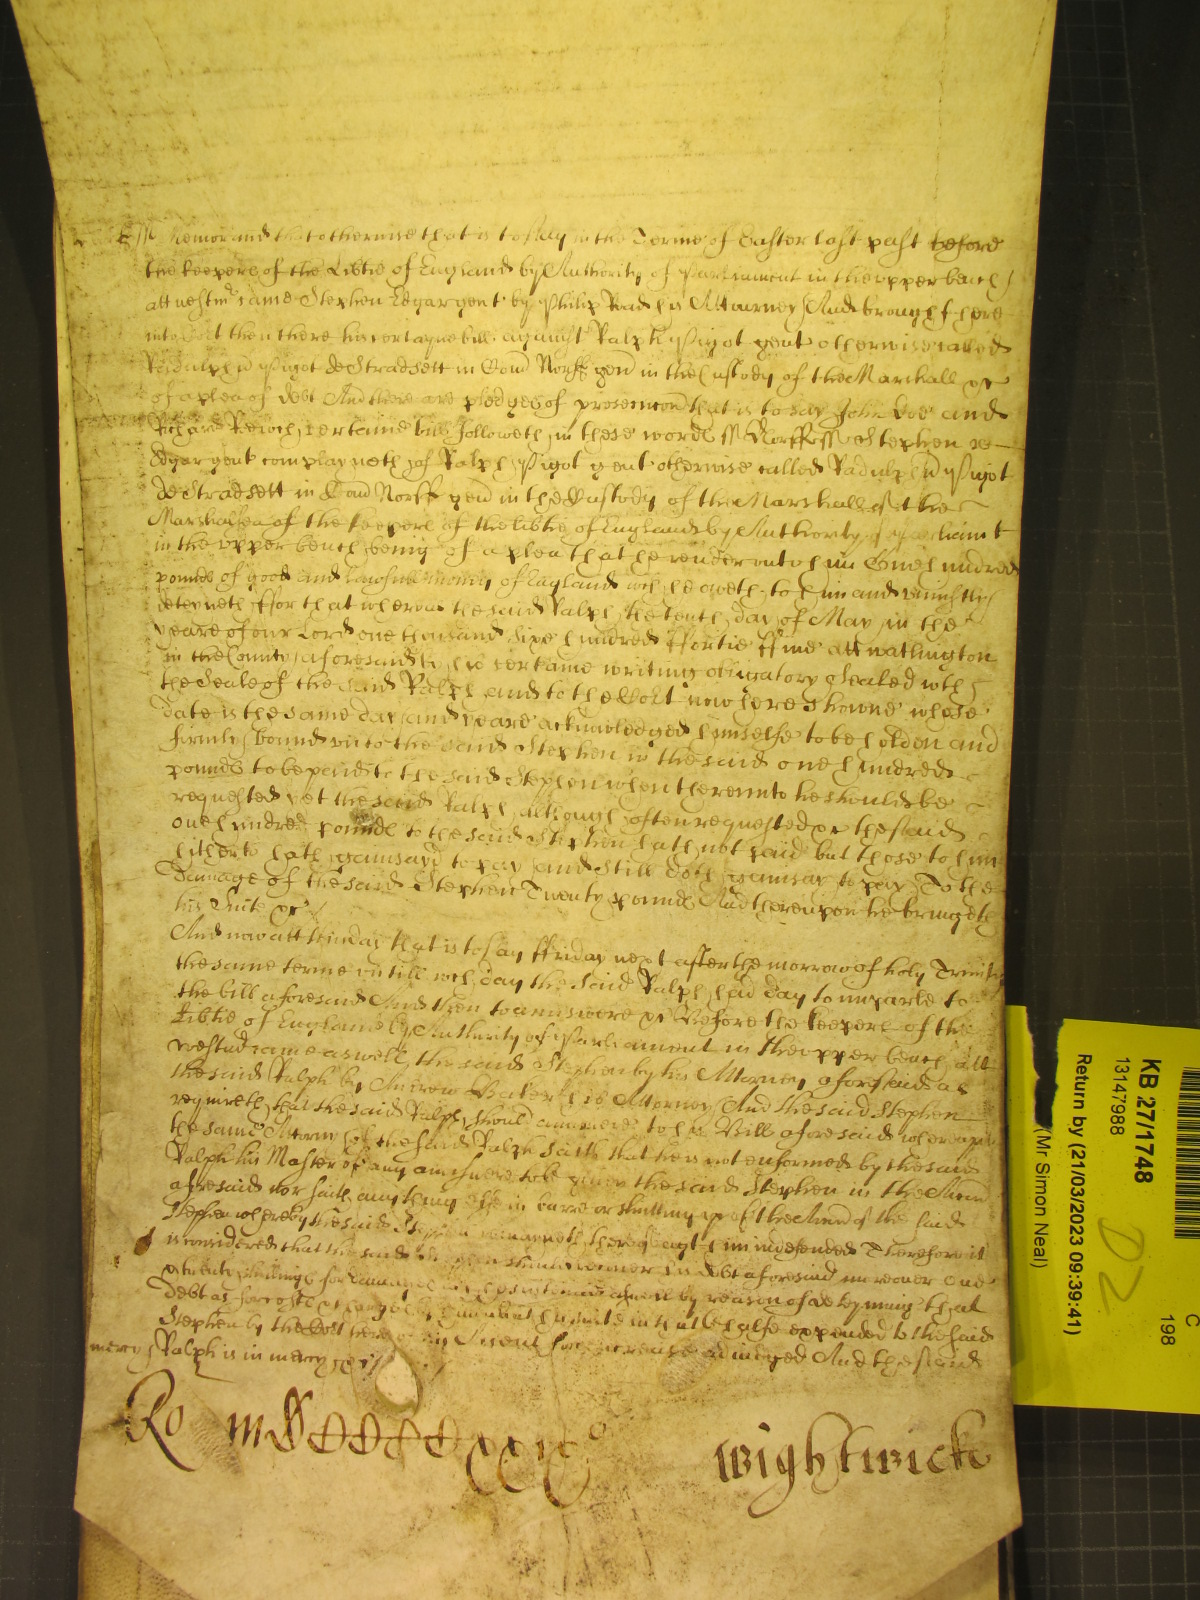 Memorand that otherwise that is to say in the Terme of Easter last past before
the keepers of the Libtie of England by Authority of Parliament in the upper bench
att Westmr came Stephen Edgar gent by Philip his Attourney And brought here
into then there his certayne bill against Ralph Pigot gent otherwise called
Radulphu Pigot de Stradsett in Com Norff gen in the Custody of the Marshall &c
of a plea of debt And there are pledges of prosecucon that is to say John Doe and
Richard Roe wch certaine bill followeth in these words ss Norff ss Stephen
Edgar gent complayneth of Ralph Pigot gent otherwise called Radulphu Pigot
de Stradsett in Com Norff gen in the Custody of the Marshall of the
Marshalsea of the keepers of the libtie of England by Authority of Parliamt
in the upper bench being of a plea that he render unto him One hundred
pounds of good and lawfull money of England wch he oweth to him and uniustly
deteyneth ffor that whereas the said Ralph the tenth day of May in the
yeare of our Lord one thousand sixe hundred ffortie ffive att Watlington
in the County aforesaid by his certaine writing obligatory Sealed wth
the Seale of the said Ralph and to the Cort now here showne whose
date is the same day and yeare acknowledged himselfe to be holden and
firmly bound unto the said Stephen in the said one hundred
pounds to be paid to the said Stephen when thereunto he should be
requested yet the said Ralph although often requested &c the said
one hundred pounds to the said Stephen hath not paid but those to him
hitherto hath gainsayd to pay and still doth gainsay to pay To the
Damage of the said Stephen Twenty pounds And thereupon he bringeth
his Suite &c
And now att this day that is to say ffriday next after the morrow of holy Trinity
the same terme untill wch day the said Ralph had day to imparle to
the bill aforesaid And then to answere &c Before the keepers of the
Libtie of England by Authority of Parliament in the upper bench att
Westm came aswell the said Stephen by his Attorney aforesaid as
the said Ralph by Andrew his Attorney And the said Stephen
requireth that the said Ralph should answere to his Bill aforesaid whereupon
the same Attorny of the said Ralph saith that he is not enformed by the said
Ralph his Master of any answere to be given the said Stephen in the
aforesaid nor saith any thing else in barre or of the said
Stephen whereby the said Stephen remayneth thereof agt him undefended Therefore it
is considered that the said Stephen should recover his debt aforesaid
shillings for damages wch he susteined aswell by reason of deteyning that
Debt as for costs & charges by him about his suite in that behalfe expended to the said
Stephen by the Cort here of his Assent adiudged And the said
mercy Ralph is in mercy &c
Ro
Wightwick
KB 27/1748
13147988
Return by (21/03/2023 09:39:41)
(Mr Simon Neal)
C
198
D2